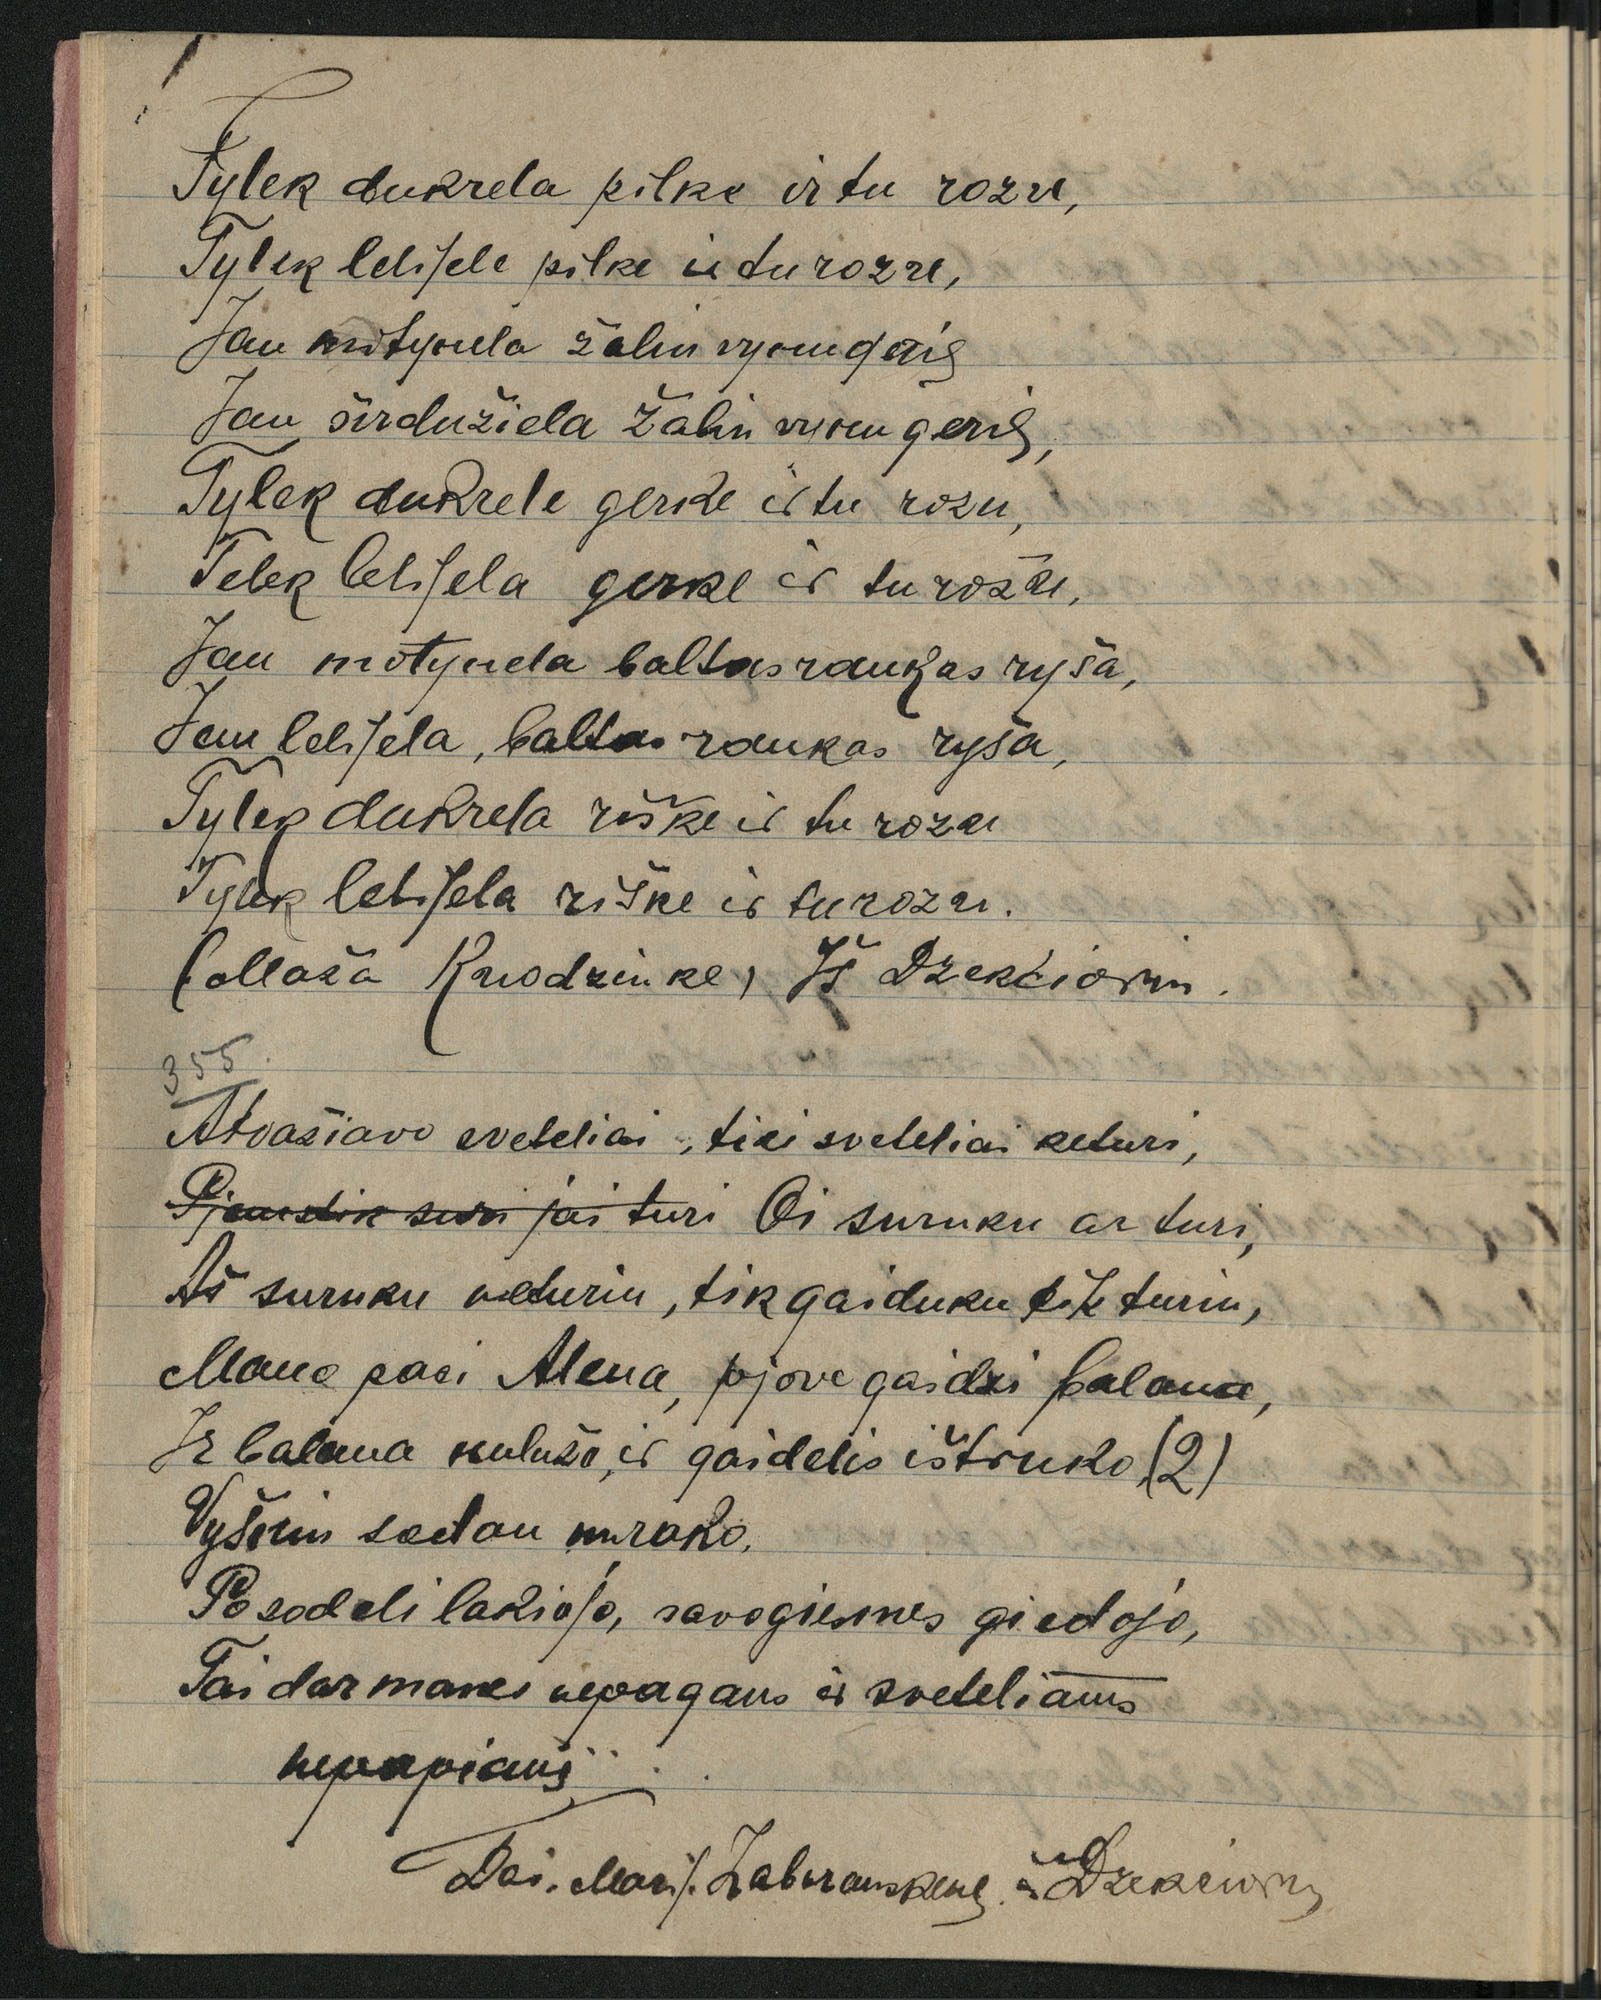 Tylek dukrela pilke ir tu rozu,
Tylek lelijele pilke ir tu rozu,
Jau motynela žalin vynu geria
Jau širdužiela žalin vynu geria,
Tylek dukrele gerke ir tu rozu,
Telek lelijela gerke ir tu rožu,
Jau motynela baltas rankas ryša,
Jau lelijela, baltas rankas ryša,
Tylek dukrela riške ir tu rozu
Tylek lelijela riške ir tu rozu.
Iš
355.
Atvažiavo sveteliai, tiei sveteliai keturi,
Pjaustik suri jai turi Oi suruku ar turi,
Aš suruku neturiu, tik gaiduku tik turiu,
Mano paci Alena, pjove gaidzi balana,
Ir balana nulužo, ir gaidelis ištruko, (2)
Vyšniu sodan nuroko.
Po sodeli lakiojo, savo giesmes giedojo,
Tai dar manes nepagaus ir sveteliams
nepapiaus.